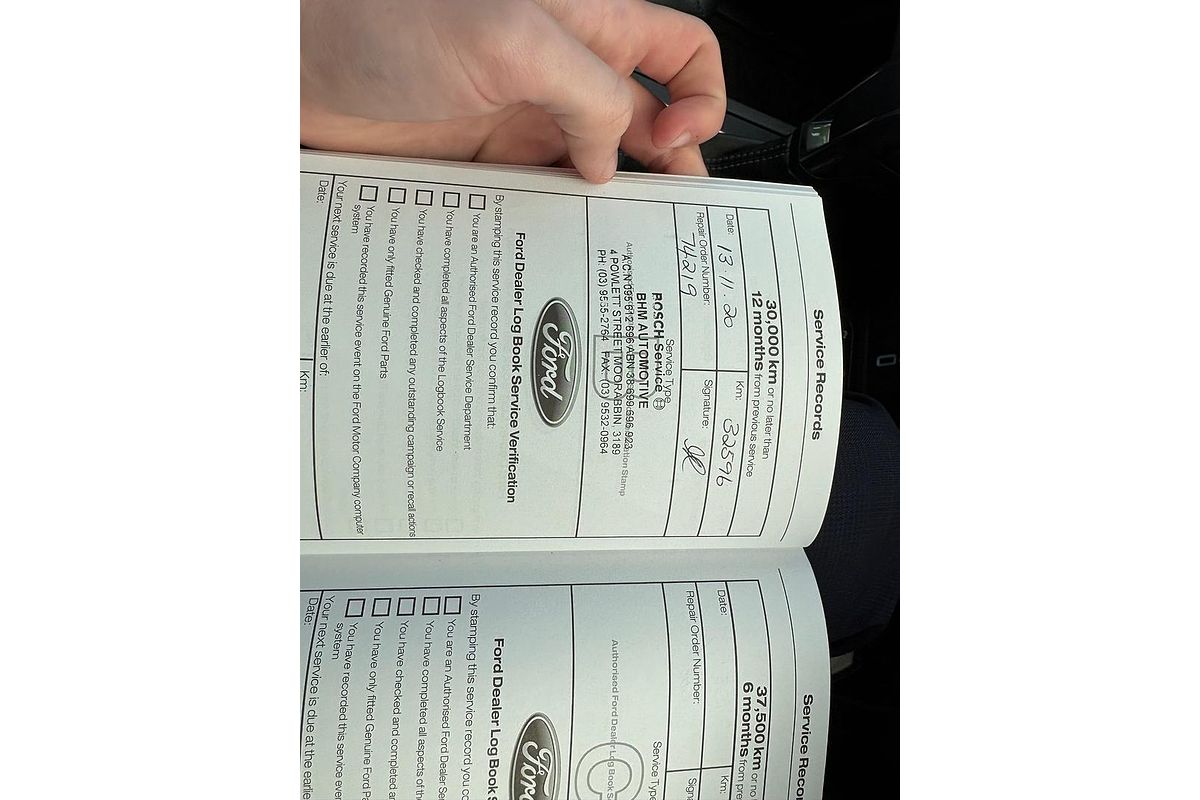 Service Records
30,000 km or no later than
12 months from previous service
Date: 13.11.20 Km: 32596
Repair Order Number: 74219 Signature:
Service Type
BOSCH Service
BHM AUTOMOTIVE
A.C.N 095 612 696 ABN 38 699 696 923
4 POWLETT STREET MOORABBIN, 3189
PH: (03) 9555-2764 FAX: (03) 9532-0964
Ford
Ford Dealer Log Book Service Verification
By stamping this service record you confirm that:
You are an Authorised Ford Dealer Service Department
You have completed all aspects of the Logbook Service
You have checked and completed any outstanding campaign or recall actions
You have only fitted Genuine Ford Parts
You have recorded this service event on the Ford Motor Company computer
system
Your next service is due at the earlier of:
Date: Km:
Service Recor
37,500 km or no
6 months from pre
Date: Km:
Repair Order Number: Signa
Service Type
Authorised Ford Dealer Log Book S
Ford
Ford Dealer Log Book S
By stamping this service record you co
You are an Authorised Ford Dealer Se
You have completed all aspects of the
You have checked and completed a
You have only fitted Genuine Ford Pa
You have recorded this service eve
system
Your next service is due at the earlie
Date: